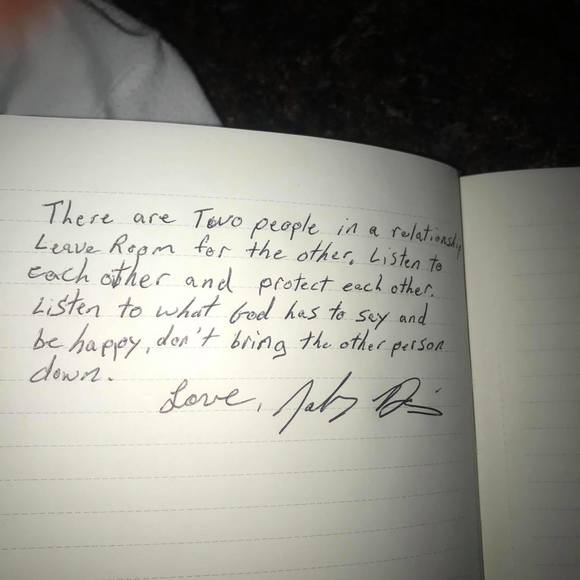 There are Two people in a relationship
Leave Room for the other. Listen to
each other and protect each other.
Listen to what God has to say and
be happy, don't bring the other person
down.
Love,